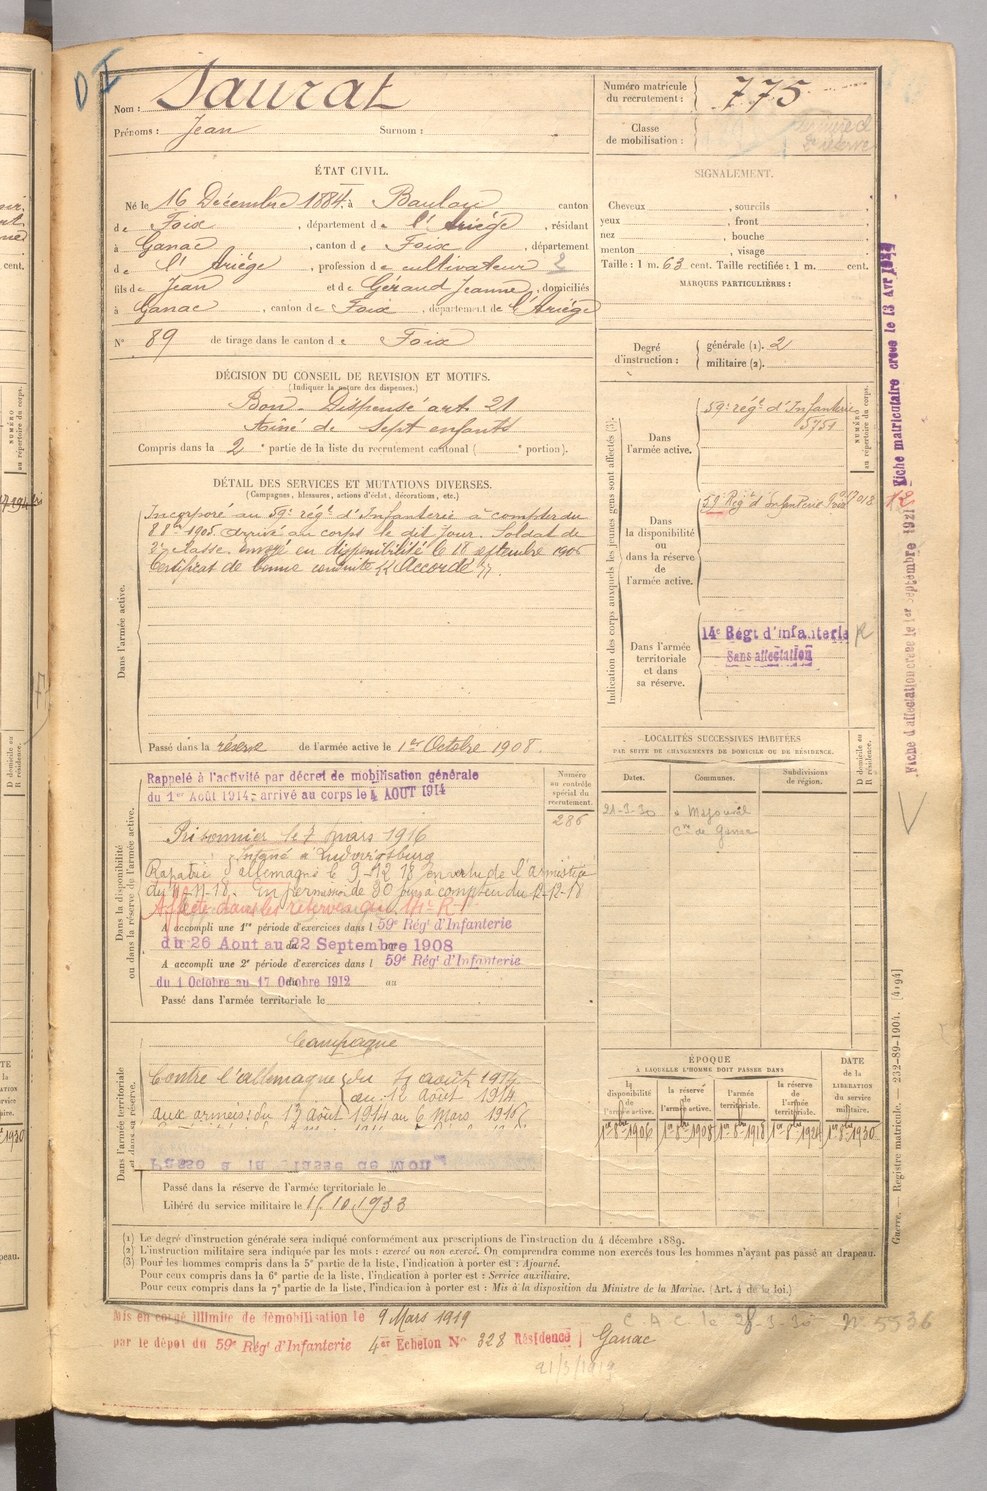 D I
Nom : Saurat
Prénoms : Jean Surnom :
Numéro matricule du recrutement : 775
Classe de mobilisation :
ÉTAT CIVIL.
Né le 16 Décembre 1884 à Baulou canton
de Foix, département de l'Ariège, résidant
à Ganac, canton de Foix, département
de l'Ariège, profession de cultivateur 2
fils de Jean et de Géraud Jeanne, domiciliés
à Ganac, canton de Foix, département de l'Ariège
N° 89 de tirage dans le canton de Foix
SIGNALEMENT.
Cheveux , sourcils ,
yeux , front ,
nez , bouche ,
menton , visage .
Taille : 1 m. 63 cent. Taille rectifiée : 1 m. cent.
MARQUES PARTICULIÈRES :
Degré d'instruction : générale (1). 2
militaire (2).
DÉCISION DU CONSEIL DE REVISION ET MOTIFS.
(Indiquer la nature des dispenses.)
Bon - Dispensé art. 21
Aîné de sept enfants
Compris dans la 2e partie de la liste du recrutement cantonal ( e portion).
DÉTAIL DES SERVICES ET MUTATIONS DIVERSES.
(Campagnes, blessures, actions d'éclat, décorations, etc.)
Dans l'armée active.
Incorporé au 59e régt d'Infanterie à compter du
8 8bre 1905 arrivé au corps le dit jour. Soldat de
2e classe. envoyé en disponibilité le 18 septembre 1906
Certificat de bonne conduite "Accordé".
Passé dans la réserve de l'armée active le 1er Octobre 1908.
Indication des corps auxquels les jeunes gens sont affectés (3).
Dans l'armée active.
59e régt d'Infanterie
5751
NUMÉRO au répertoire du corps.
Dans la disponibilité ou dans la réserve de l'armée active.
59e Régt d'Infanterie Foix
Dans l'armée territoriale et dans sa réserve.
14e Régt d'infanterie
Sans affectation
Fiche d'affectation créée le 1er septembre 1921
Fiche matriculaire créée le 13 Avr
LOCALITÉS SUCCESSIVES HABITÉES
PAR SUITE DE CHANGEMENTS DE DOMICILE OU DE RÉSIDENCE.
Dates. Communes. Subdivisions de région. D domicile ou R résidence.
21-3-30 à
Cne de Ganac
Dans la disponibilité ou dans la réserve de l'armée active.
Numéro au contrôle spécial du recrutement.
286
Rappelé à l'activité par décret de mobilisation générale
du 1er Août 1914; arrivé au corps le 4 AOUT 1914
Prisonnier le 7 mars 1916
Interné à Ludwigsburg
Rapatrié d'allemagne le 9-12 18 en vertu de l'armistice
du 11-11-18. En permission de 30 jours à compter du 12-12-18
Affecté dans les réserves au 14e R I
A accompli une 1re période d'exercices dans l 59e Rég' d'Infanterie
du 26 Aout au 22 Septembre 1908
A accompli une 2e période d'exercices dans l 59e Rég' d'Infanterie
du 1 Octobre au 17 Octobre 1912 au
Passé dans l'armée territoriale le
Dans l'armée territoriale et dans sa réserve.
Campagne
Contre l'allemagne du 4 août 1914
au 12 Août 1914
aux armées : du 13 août 1914 au 6 Mars 1916
Passé dans la réserve de l'armée territoriale le
Libéré du service militaire le 15.10.1933
ÉPOQUE
À LAQUELLE L'HOMME DOIT PASSER DANS
la disponibilité de l'armée active. la réserve de l'armée active. l'armée territoriale. la réserve de l'armée territoriale. DATE de la LIBÉRATION du service militaire.
1er 8bre 1906 1er 8bre 1908 1er 8bre 1918 1er 8bre 1924 1er 8bre 1930
Guerre. — Registre matricule. — 232-89-1904. [4194]
(1) Le degré d'instruction générale sera indiqué conformément aux prescriptions de l'instruction du 4 décembre 1889.
(2) L'instruction militaire sera indiquée par les mots : exercé ou non exercé. On comprendra comme non exercés tous les hommes n'ayant pas passé au drapeau.
(3) Pour les hommes compris dans la 5e partie de la liste, l'indication à porter est : Ajourné.
Pour ceux compris dans la 6e partie de la liste, l'indication à porter est : Service auxiliaire.
Pour ceux compris dans la 7e partie de la liste, l'indication à porter est : Mis à la disposition du Ministre de la Marine. (Art. 4 de la loi.)
Mis en congé illimité de démobilisation le 9 Mars 1919
par le dépôt du 59e Rég' d'Infanterie 4e Echelon N° 328 Résidence Ganac
C.A.C. le 28-3-30 N° 5536
21/3/1919